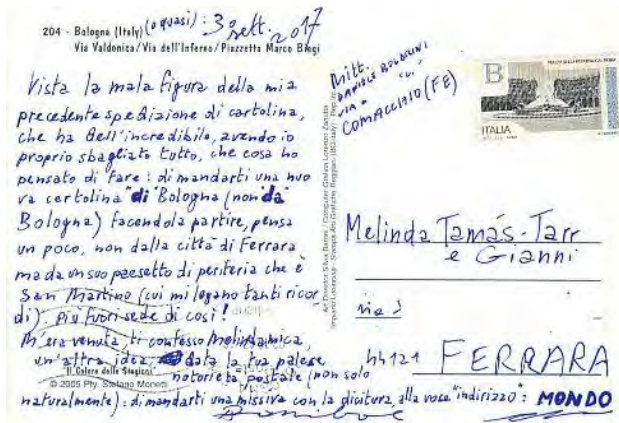 204 - Bologna (Italy) (o quasi): 3 sett. 2017
Via Valdonica/Via dell'Inferno/Piazzetta Marco Biagi
Vista la mala figura della mia
precedente spedizione di cartolina,
che ha dell'incredibile, avendo io
proprio sbagliato tutto, che cosa ho
pensato di fare: di mandarti una nuo
va certolina "di" Bologna (non "da"
Bologna) facendola partire, pensa
un poco, non dalla città di Ferrara
ma da un suo paesetto di periferia che è
San Martino (cui mi legano tanti ricor
di). Più fuori sede di così!
M'era venuta, ti confesso Melindamica,
un'altra idea, data la tua palese
notorietà postale (non solo
naturalmente): di mandarti una missiva con la dicitura, alla voce "indirizzo": MONDO
"Il Colore delle Stagioni"
© 2005 Pty. Stefano Monetti
Mitt.
DANIELE BOLDRINI
VIA
COMACCHIO (FE)
B
ITALIA
Melinda Tamás-Tarr
e Gianni
via
44121 FERRARA